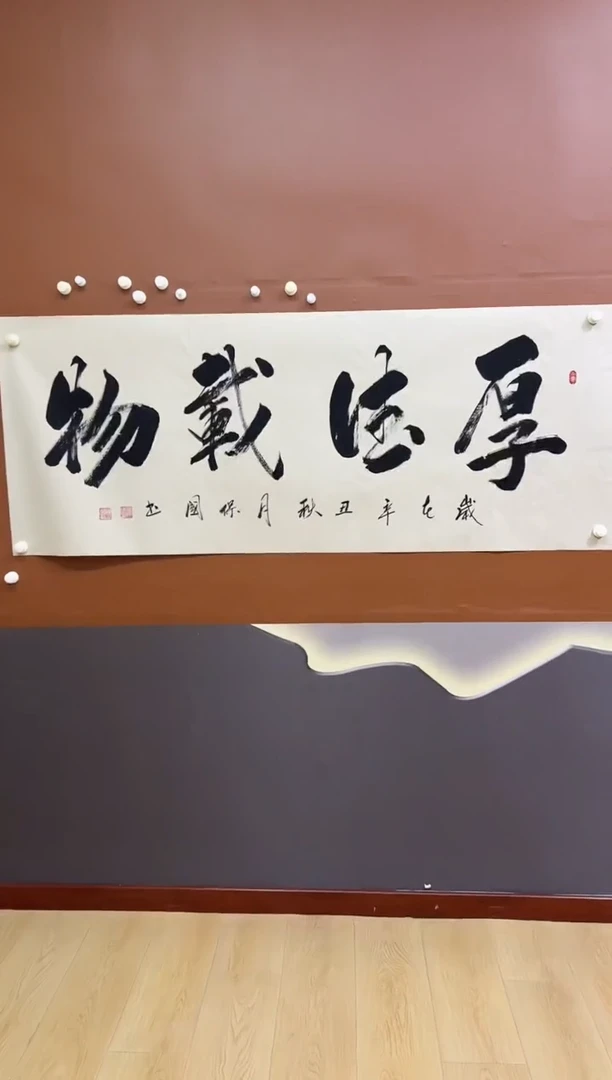 厚德載物
歲在辛丑秋月保國书